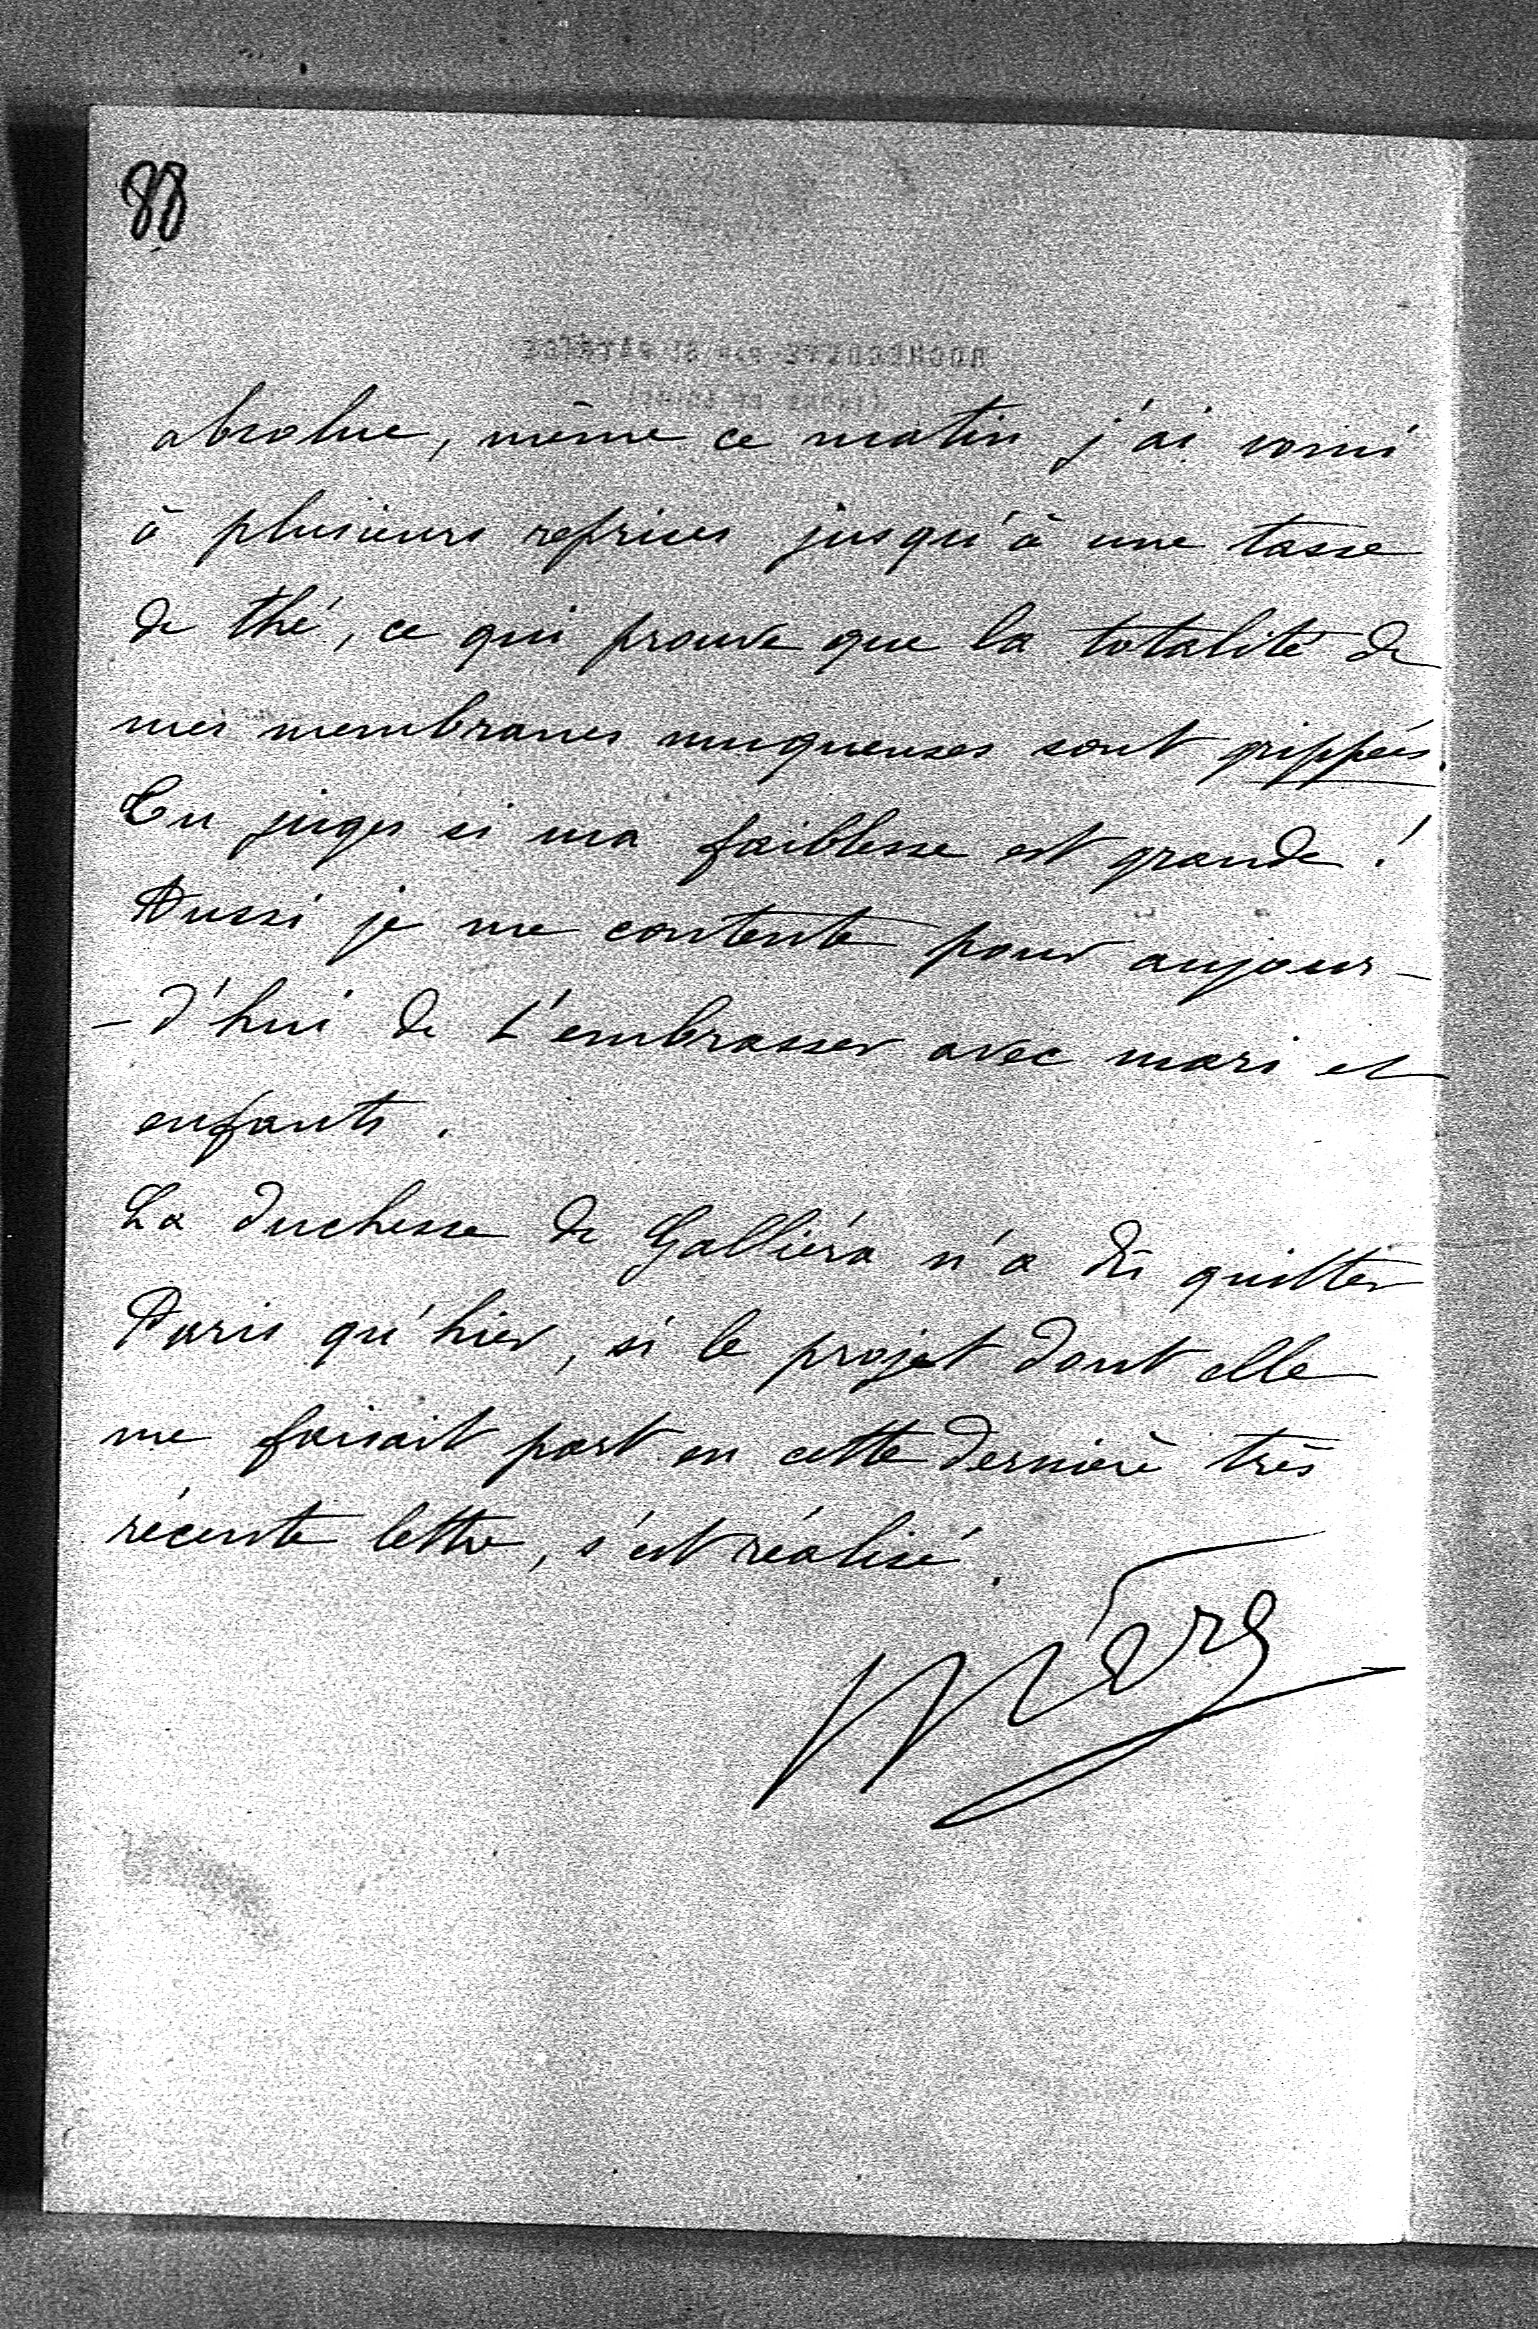 88
absolue, même ce matin j'ai vomi
à plusieurs reprises jusqu'à une tasse
de thé, ce qui prouve que la totalité de
mes membranes muqueuses sont grippées.
Tu juges si ma faiblesse est grande !
Aussi je me contente pour aujour-
-d'hui de t'embrasser avec mari et
enfants.
La duchesse de Galliéra n'a dû quitter
Paris qu'hier, si le projet dont elle
me faisait part en cette dernière très
récente lettre, s'est réalisé.